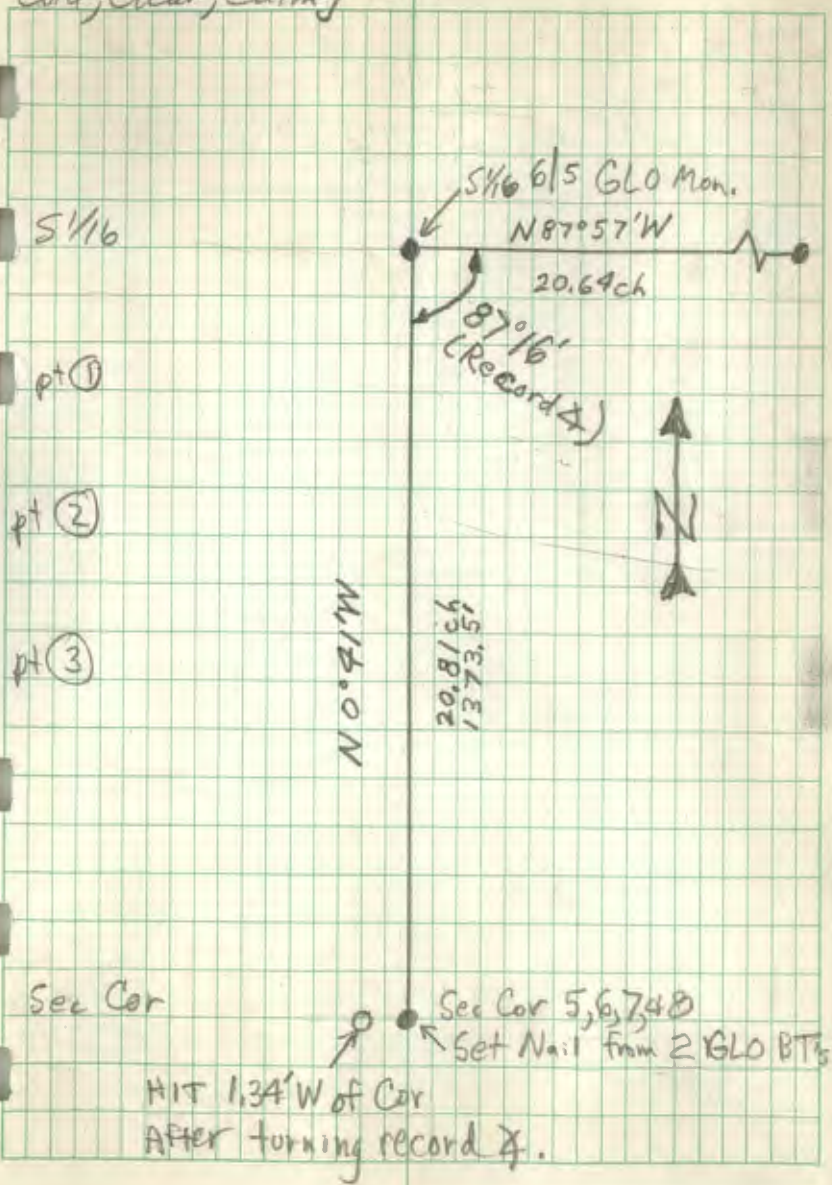 Cold, Clear, Calm
S 1/16 6/5 GLO Mon.
S 1/16
N 87°57'W
20.64ch
87°16'
(Record ∡)
pt ①
pt ②
N
pt ③
N 0°41'W
20.81ch
1373.5'
Sec Cor
Sec Cor 5,6,7,&8
Set Nail from 2 GLO BT's
HIT 1.34' W of Cor
After turning record ∡.